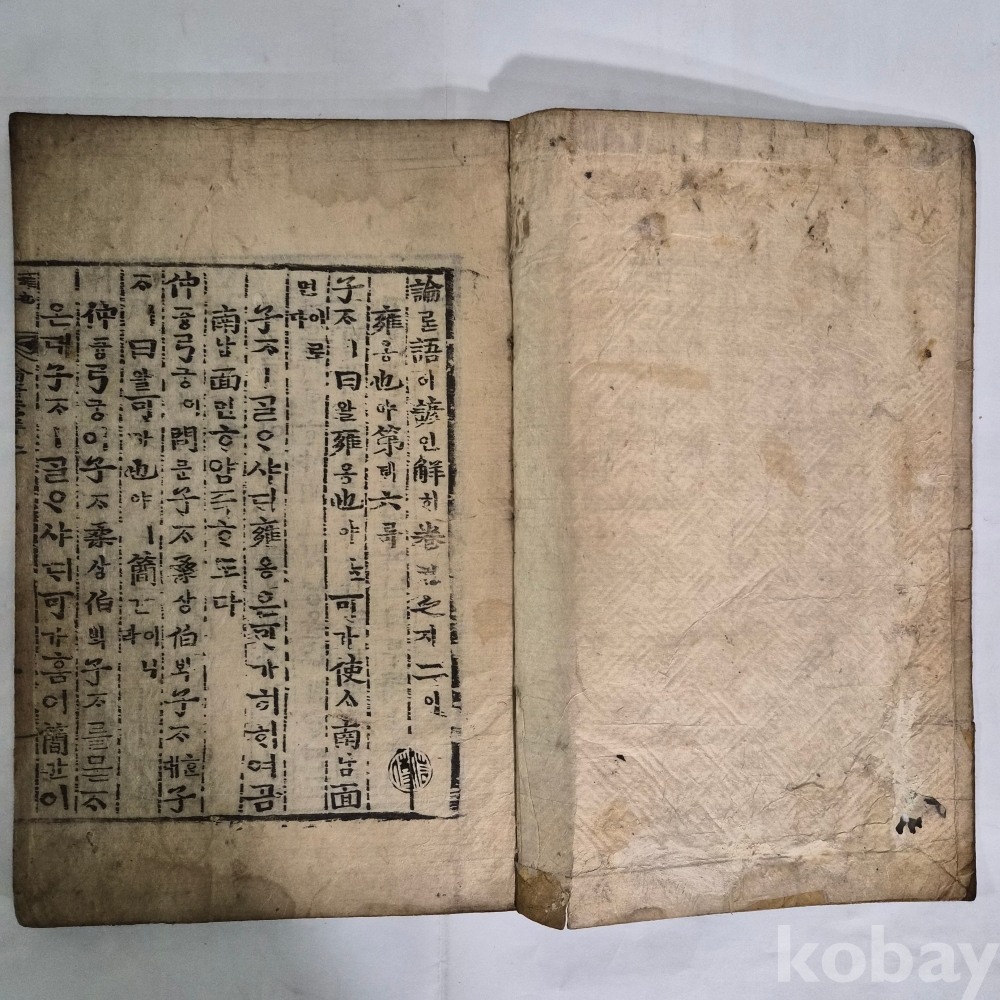 論론語어諺언解ᄒᆡ卷권之지二이
雍옹也야第뎨六륙
子ᄌᆞㅣ曰왈雍옹也야ᄂᆞᆫ可가使ᄉᆞ南남面
면이로다
子ᄌᆞㅣᄀᆞᆯᄋᆞ샤ᄃᆡ雍옹은可가히ᄒᆞ여곰
南남面면ᄒᆞ암즉ᄒᆞ도다
仲듕弓궁이問문子ᄌᆞ桑상伯ᄇᆡᆨ子ᄌᆞᄒᆞᆫ대子
ᄌᆞㅣ曰왈可가也야ㅣ簡간이니라
仲듕弓궁이子ᄌᆞ桑상伯ᄇᆡᆨ子ᄌᆞ를묻ᄌᆞ
온대子ᄌᆞㅣᄀᆞᆯᄋᆞ샤ᄃᆡ可가홈이簡간이
kobay